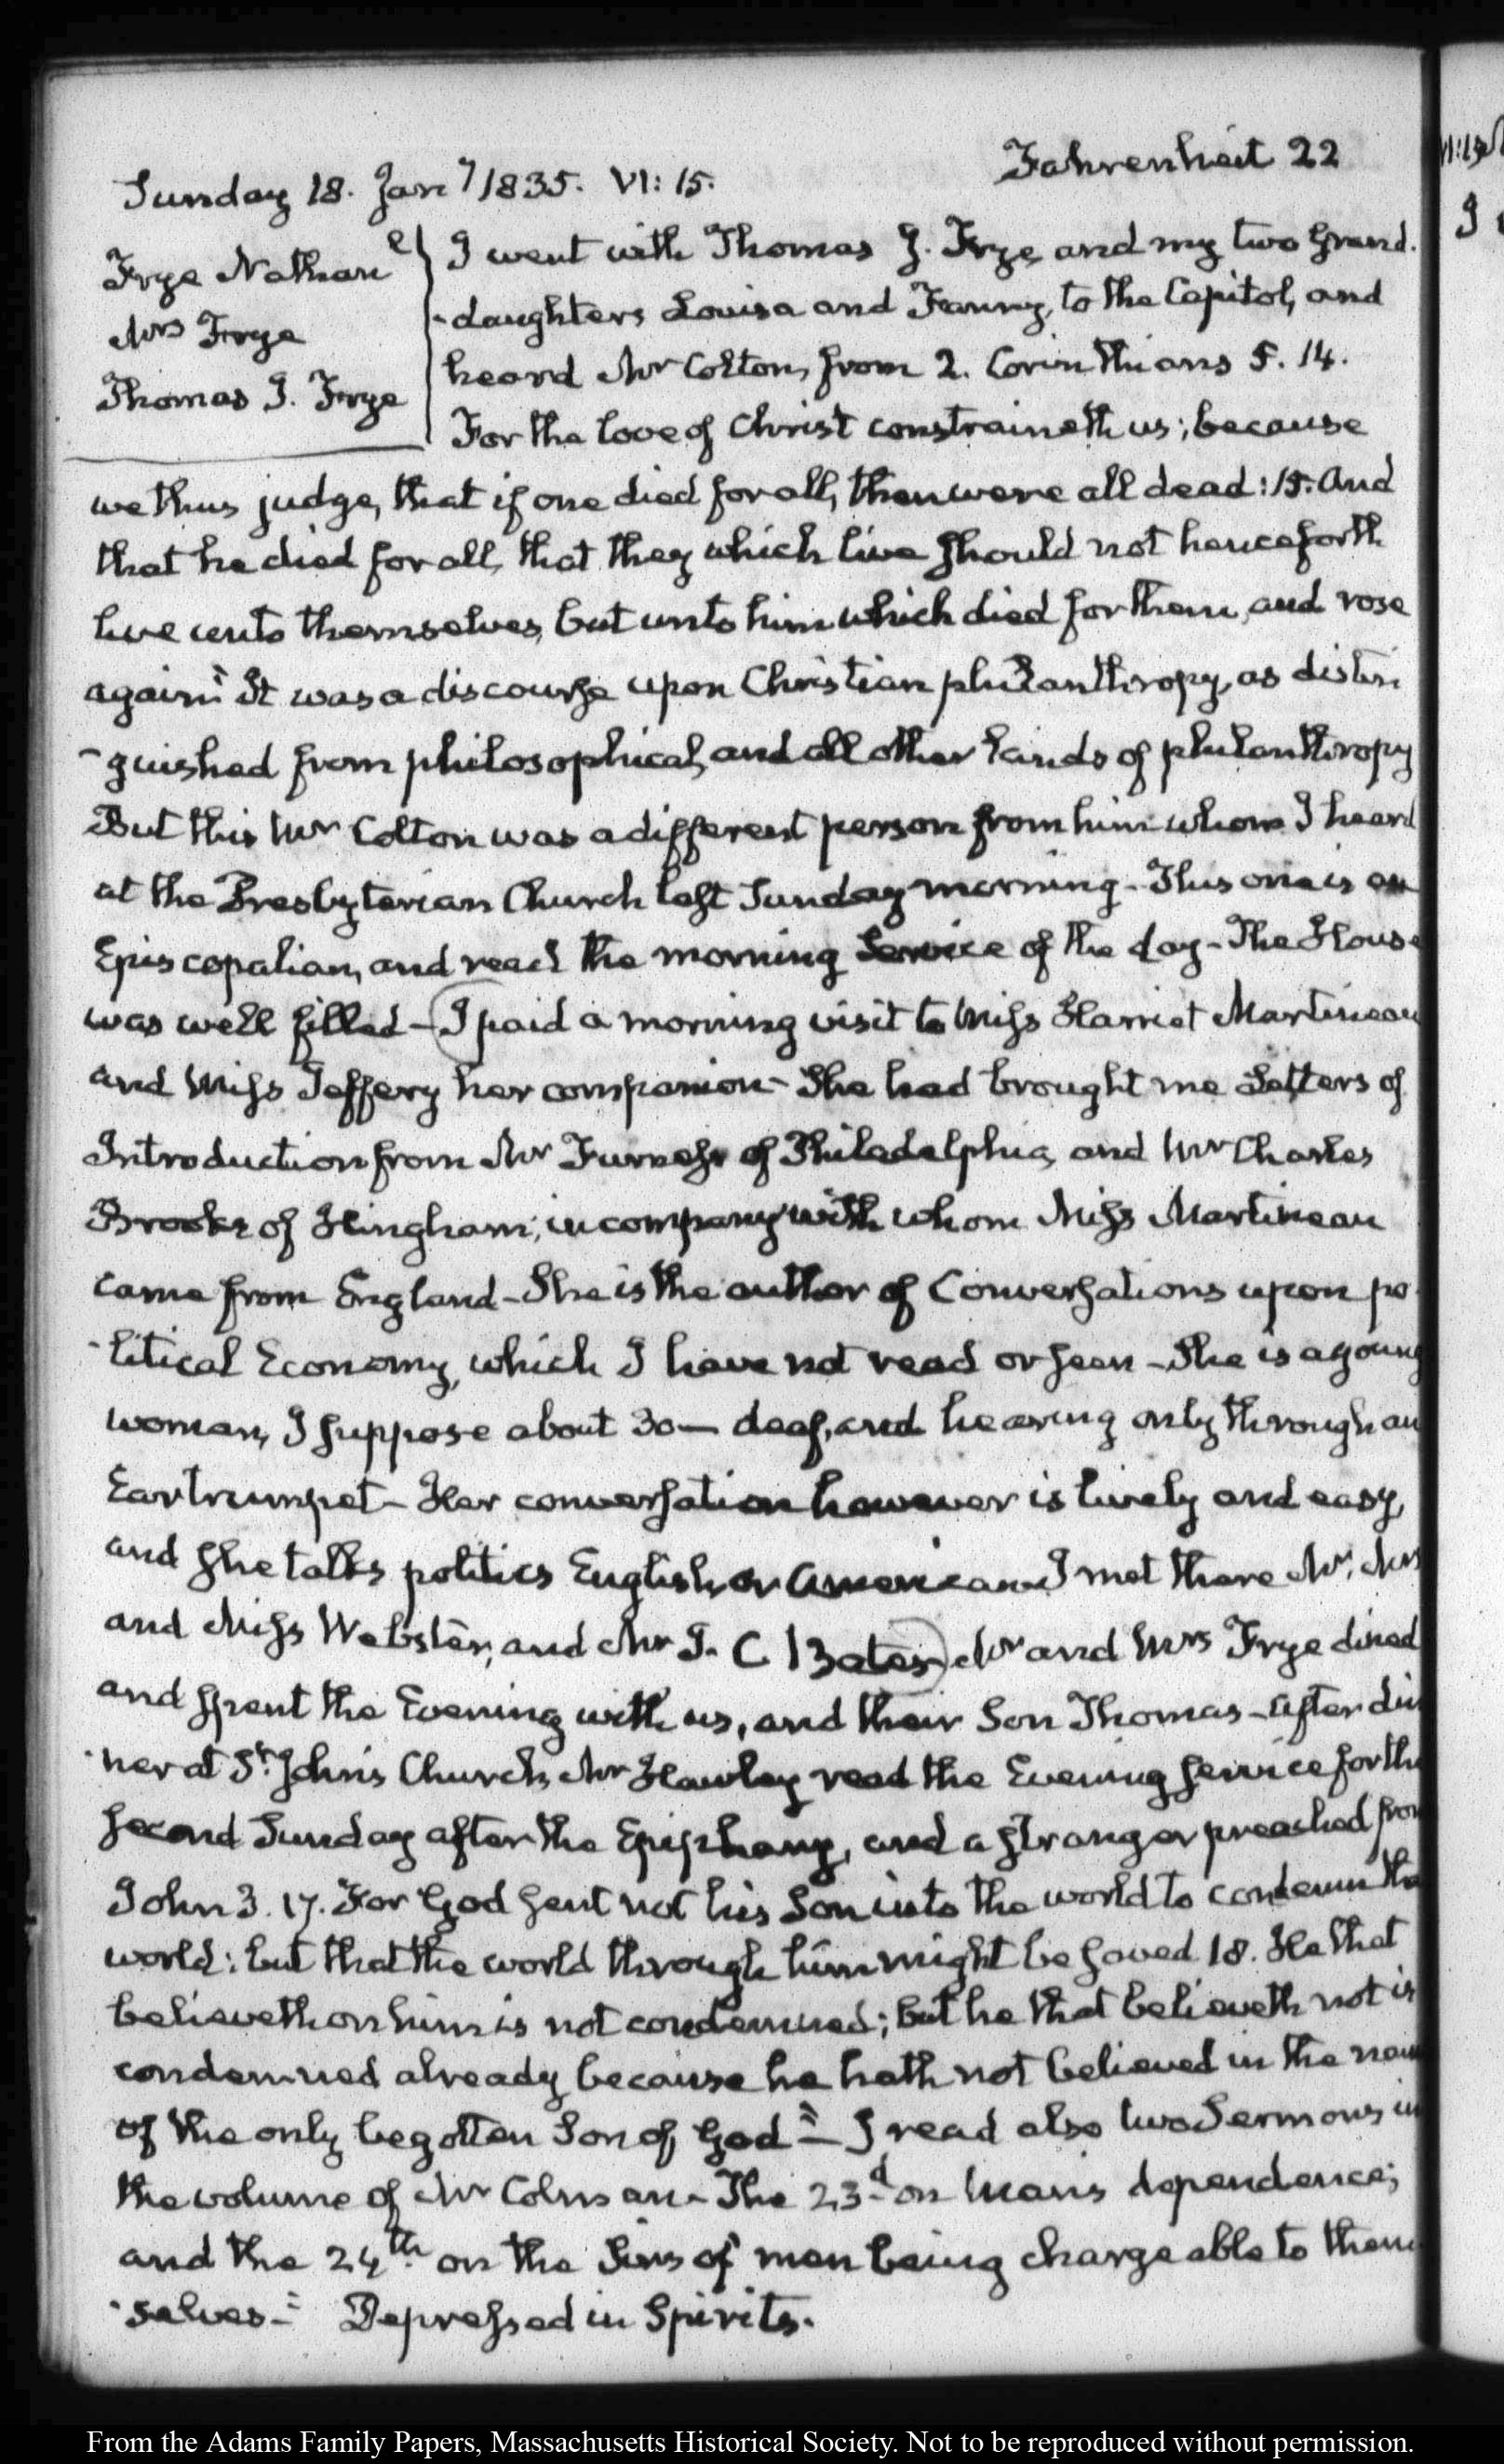 Fahrenheit 22
Sunday 18. Jany 1835. VI: 15.
Frye Nathanl
Mrs Frye
Thomas J. Frye
I went with Thomas J. Frye, and my two Grand.
-daughters Louisa and Fanny, to the Capitol, and
heard Mr Colton, from 2. Corinthians 5. 14.
For the love of Christ constraineth us; because
we thus judge, that if one died for all, then were all dead: 15. And
that he died for all, that they which live should not henceforth
live unto themselves, but unto him which died for them, and rose
again." It was a discourse upon Christian philanthropy, as distin
-guished from philosophical, and all other kinds of philanthropy
But this Mr Colton was a different person from him whom I heard
at the Presbyterian Church last Sunday morning - This one is an
Episcopalian, and read the morning Service of the day - The House
was well filled - I paid a morning visit to Miss Harriet Martineau
and Miss Jeffery her companion - She had brought me Letters of
Introduction from Mr Furness of Philadelphia, and Mr Charles
Brooks of Hingham; in company with whom Miss Martineau
came from England - She is the author of Conversations upon po
-litical Economy, which I have not read or seen - She is a young
woman, I suppose about 30 — deaf, and hearing only through an
Eartrumpet - Her conversation however is lively and easy,
and she talks politics English or American I met there Mr, Mrs
and Miss Webster, and Mr I. C Bates Mr and Mrs Frye dined
and spent the Evening with us, and their Son Thomas - After din
-ner at St. John's Church, Mr Hawley read the Evening service for the
second Sunday after the Epiphany, and a stranger preached from
John 3. 17. For God sent not his Son into the world to condemn the
world: but that the world through him might be saved 18. He that
believeth on him is not condemned; but he that believeth not is
condemned already because he hath not believed in the name
of the only begotten Son of God" — I read also two Sermons in
the volume of Mr Colman - The 23d on Man's dependence;
and the 24th on the Sins of men being chargeable to them
-selves - Depressed in Spirits.
From the Adams Family Papers, Massachusetts Historical Society. Not to be reproduced without permission.